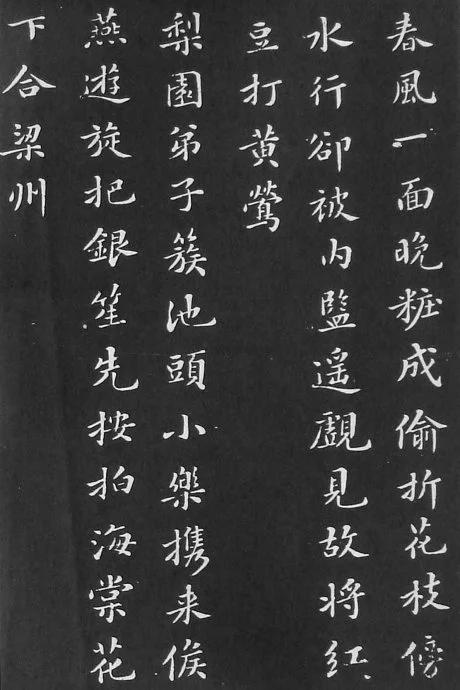 春風一面晚粧成偷折花枝傍
水行卻被內監遥覰見故將紅
豆打黄鶯
梨園弟子簇池頭小樂携来俟
燕遊旋把銀笙先按拍海棠花
下合梁州